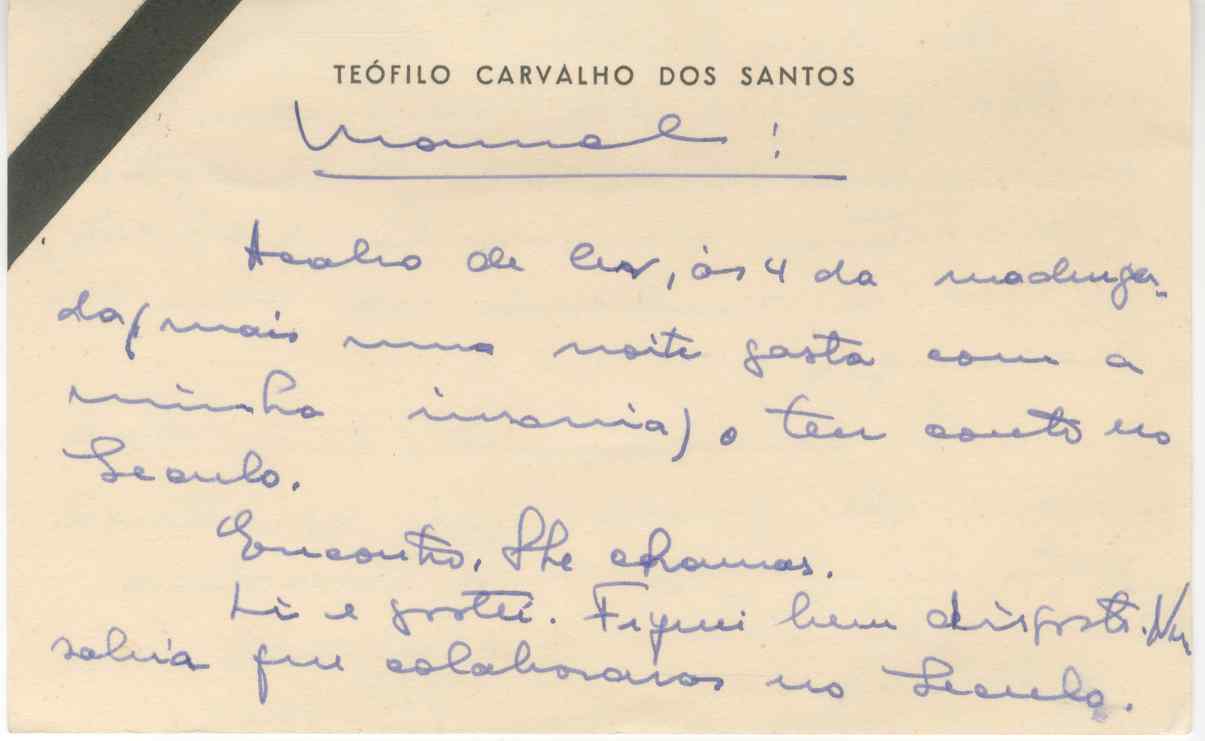 TEÓFILO CARVALHO DOS SANTOS
Manuel:
Acabo de ler, às 4 da madruga-
da (mais uma noite gasta com a
minha insonia) o teu conto no
Seculo.
Encontro, lhe chamas.
Li e gostei. Fiquei bem disposto. Nem
sabia que colaboravas no Seculo.